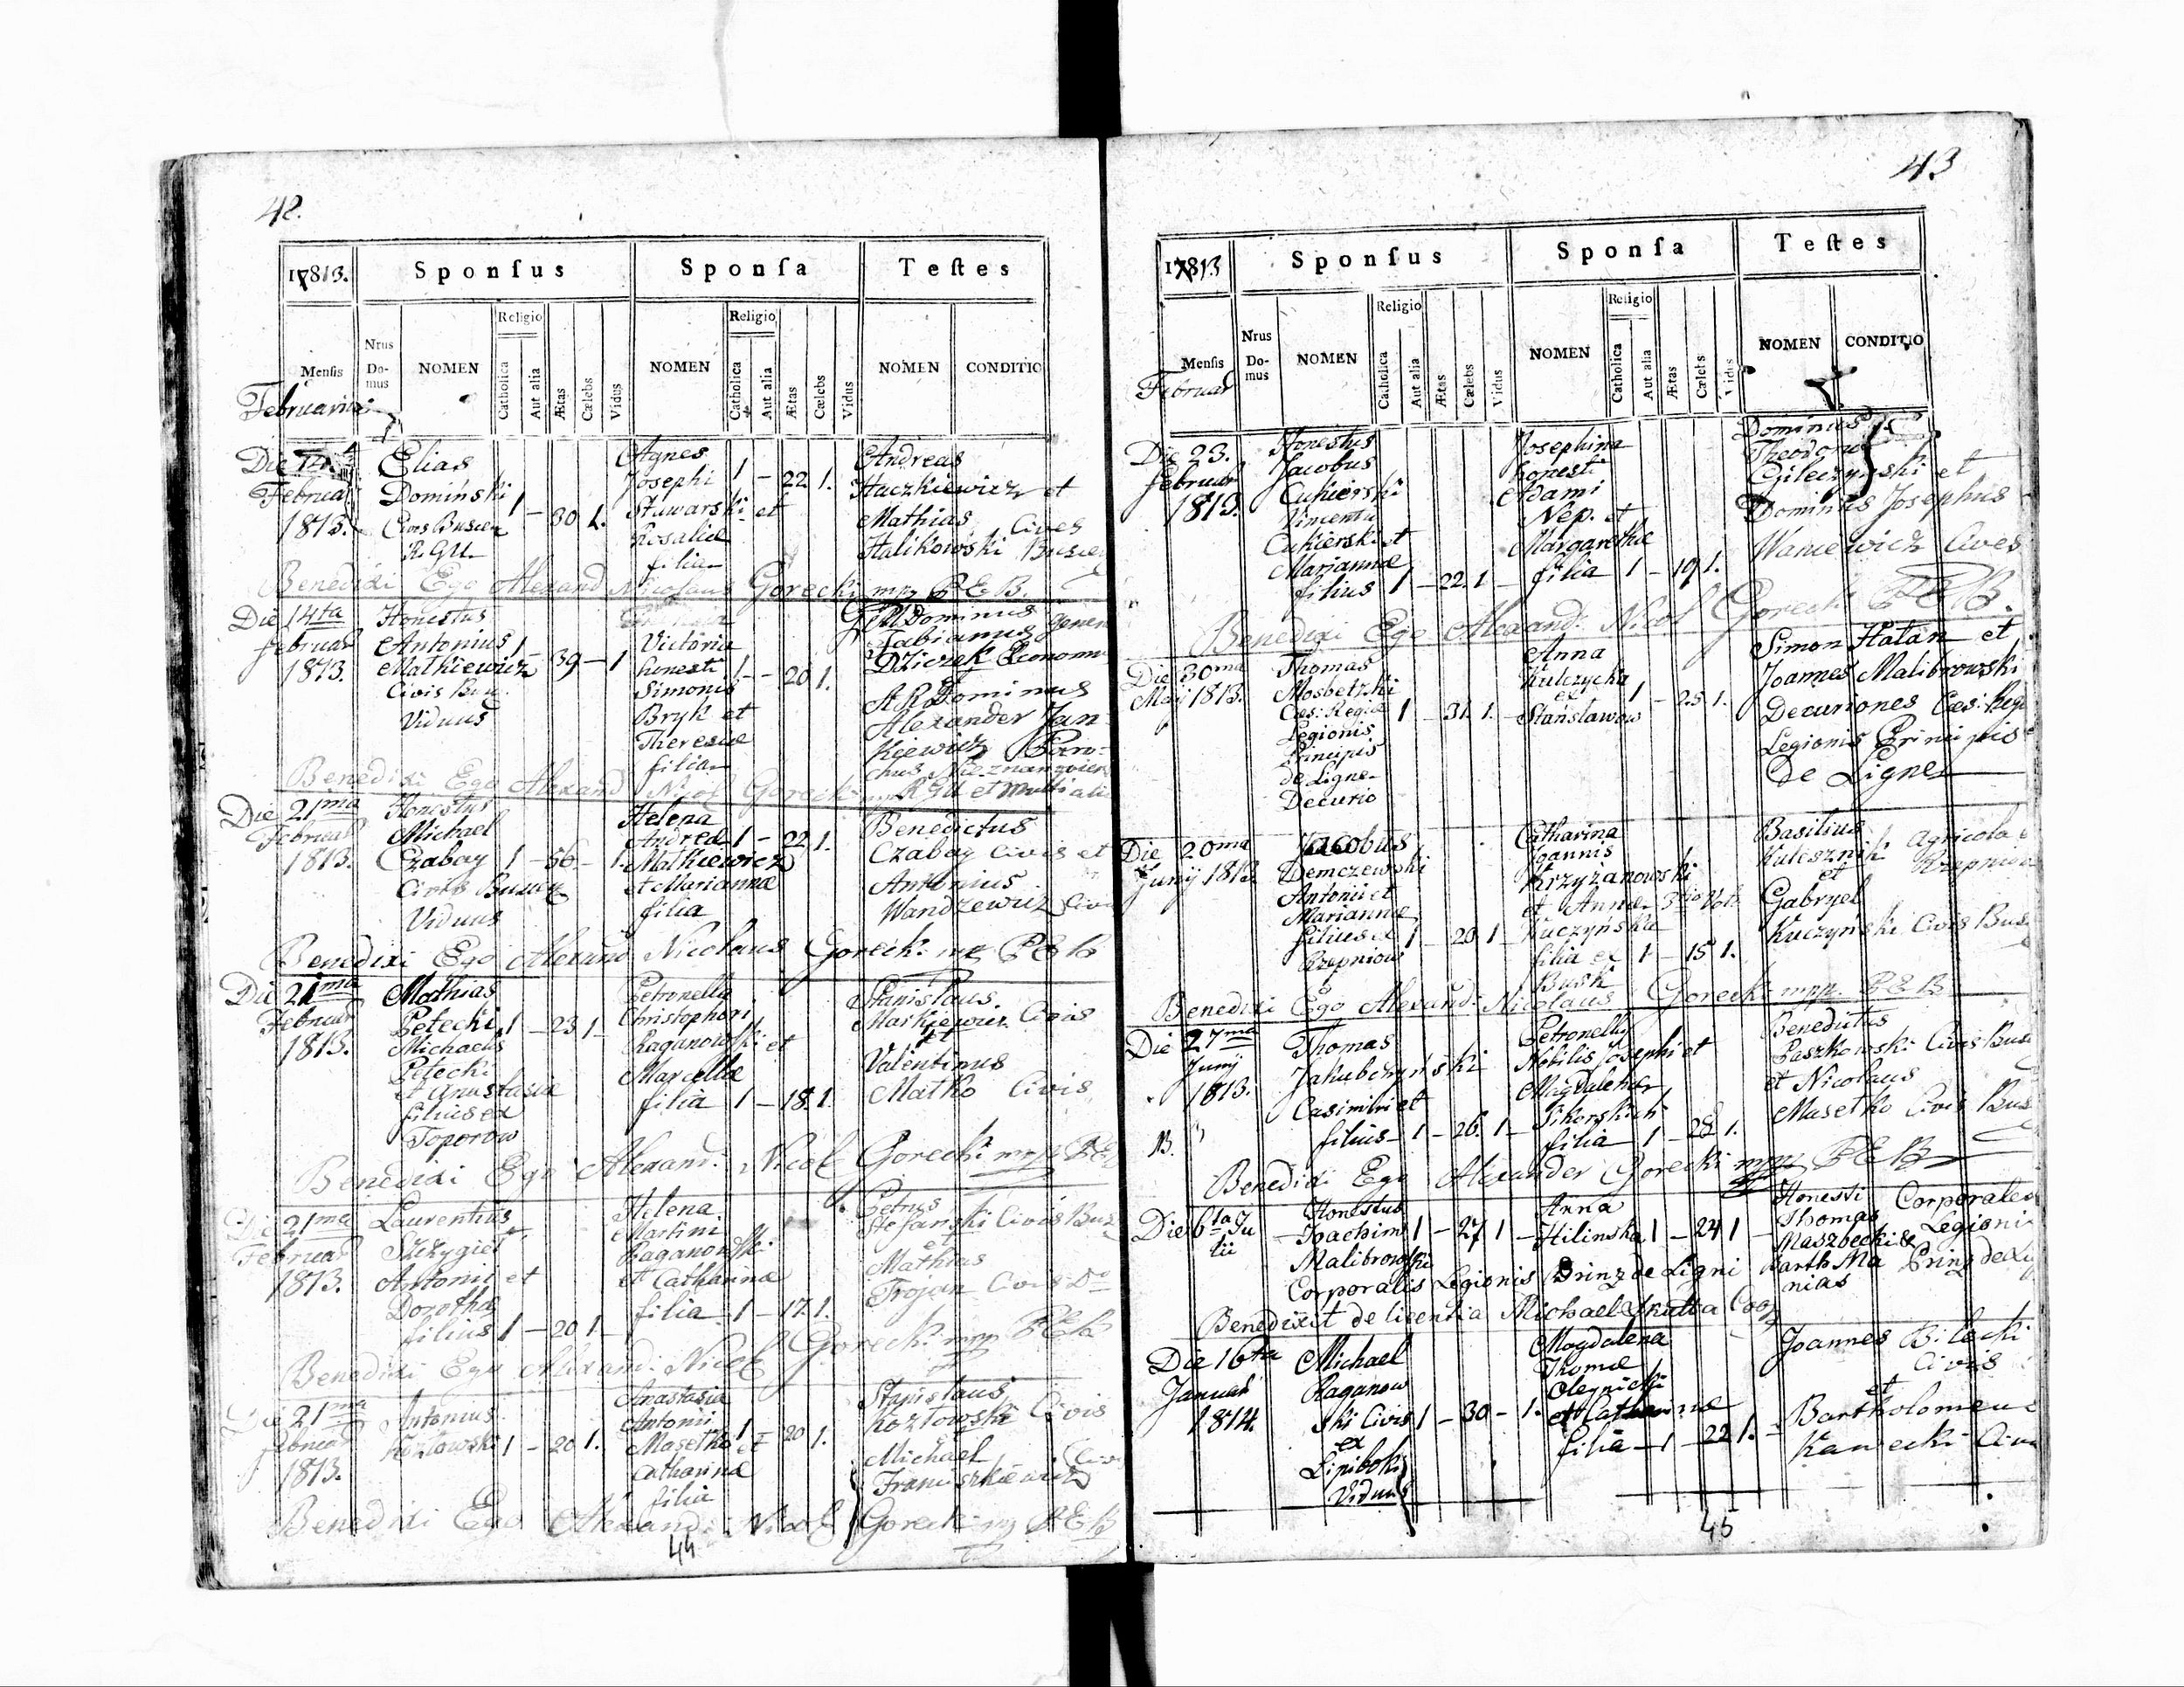 42.
17813.
Sponſus
Sponſa
Teſtes
Menſis
Nrus Do-mus
NOMEN
Religio
Catholica
Aut alia
Ætas
Cælebs
Vidus
NOMEN
Religio
Catholica
Aut alia
Ætas
Cælebs
Vidus
NOMEN
CONDITIO
Februarius
Die 14
Februar
1813.
Elias
Dominski
Civis Buscen
R. Gu
1 – 30 1.
Agnes
Josephi 1 – 22 1.
Stuwarski et
Rosaliæ
filia
Andreas
Haczkiewicz et
Mathias Cives
Halikowski Busce
Benedixi Ego Alexand Nicolaus Gorecki mpp P E B.
Die 14ta
Februar
1813.
Honestus
Antonius
Mathiewicz 1 – 39 – 1
Civis Bus.
Viduus
Victoria
honesti 1 – 20 1.
Simonis
Bryk et
Theresiæ
filia
Dominus
Fabianus
Dziczek Econom
A R Dominus
Alexander Jan
kiewicz Paro-
chus
R Gu et multi ali
Benedixi Ego Alexand Nicol Gorecki
Die 21ma
Februar
1813.
Honestus
Michael
Czabay 1 – 56 – 1.
Civis Buscen
Viduus
Helena
Andreæ 1 – 22 1.
Mathiewicz
et Mariannæ
filia
Benedictus
Czabay Civis et
Antonius
Wandzewicz Civi
Benedixi Ego Alexand Nicolaus Gorecki mpp P E B
Die 21ma
Februar
1813.
Mathias
Petecki 1 – 23 1.
Michaelis
Petecki
et Anastasiæ
filius ex
Toporow
Petronella
Christophori
Raganowski et
Marcellæ
filia 1 – 18. 1.
Stanislaus
Markiewicz Civis
et
Valentinus
Matko Civis
Benedixi Ego Alexand: Nicol Gorecki mpp P E B
Die 21ma
Februar
1813.
Laurentius
Szczygiel
Antonii et
Dorotheæ
filius 1 – 20 1.
Helena
Martini
Raganowski
et Catharinæ
filia 1 – 17. 1.
Petrus
Stefanski Civis Bus
et
Mathias
Trojan Civis Do
Benedixi Ego Alexand: Nicol Gorecki mpp P E B
Die 21ma
Februar
1813.
Antonius
Kozlowski 1 – 20 1.
Anastasia
Antonii 1 – 20 1.
Masetko et
Catharinæ
filia
Stanislaus
Kozlowski Civis
Michael
Franiszkiewicz
Benedixi Ego Alexand: Nicol Gorecki mpp P E B
44
43
17813
Sponſus
Sponſa
Teſtes
Menſis
Nrus Do-mus
NOMEN
Religio
Catholica
Aut alia
Ætas
Cælebs
Vidus
NOMEN
Religio
Catholica
Aut alia
Ætas
Cælebs
Vidus
NOMEN
CONDITIO
Februar
Die 23.
Februar
1813.
Honestus
Jacobus
Cukierski
Vincentii
Cukierski et
Mariannæ
filius 1 – 22. 1
Josephina
honesti
Adami
Nep. et
Margarethæ
filia 1 – 19 1.
Dominus
Theodorus
Gileczynski et
Dominus Josephus
Waniewicz Cives
Benedixi Ego Alexand: Nicol Gorecki P E B.
Die 30ma
Maij 1813.
Thomas
Mosbetzki
Cæs: Regiæ 1 – 31. 1.
Legionis
Principis
de Ligne
Decurio
Anna
Kulczycka
ex 1 – 25 1.
Stanislawow
Simon Hatan et
Joannes Malibrowski
Decuriones Cæs: Reg
Legionis Principis
De Ligne
Die 20ma
Junij 1813.
Jacobus
Demczewski
Antonii et
Mariannæ
filius ex 1 – 20 1
Rzepniow
Catharina
Joannis
Krzyzanowski
et Annæ 3tio Vot
Kuczyńska
filia ex 1 – 15 1.
Busk
Basilius
Kulesznik Agricola
et Rzepniow
Gabryel
Kuczyński Civis Bus
Benedixi Ego Alexand: Nicolaus Gorecki mpp. P E B
Die 27ma
Junij
1813.
B.
Thomas
Jakubczyński
Casimiri et
filius 1 – 26. 1
Petronella
Nobilis Josephi et
Magdalenæ
Sikorskich
filia 1 – 28 1.
Benedictus
Paszkowski Civis Bus
et Nicolaus
Masetko Civis Bus
Benedixi Ego Alexander Gorecki mpp P E B
Die 6ta Ju
lii
Honestus
Joachim 1 – 27 1
Malibrowski
Corporalis Legionis Prinz de Ligni
Anna
Hilinska 1 – 24 1
Honesti Corporales
Thomas Legioni
Maszbecki &
Barth Ma Prinz de Lig
nias
Benedixit de licentia Michael Skutta Coop
Die 16ta
Januar
1814.
Michael
Raganow
ski Civis 1 – 30 – 1.
ex
Lipiboki
Viduus
Magdalena
Thomæ
Oleynicki
et Catharinæ
filia 1 – 22 1.
Joannes Bilecki
Civis
et
Bartholomeus
Kawecki Civi
45